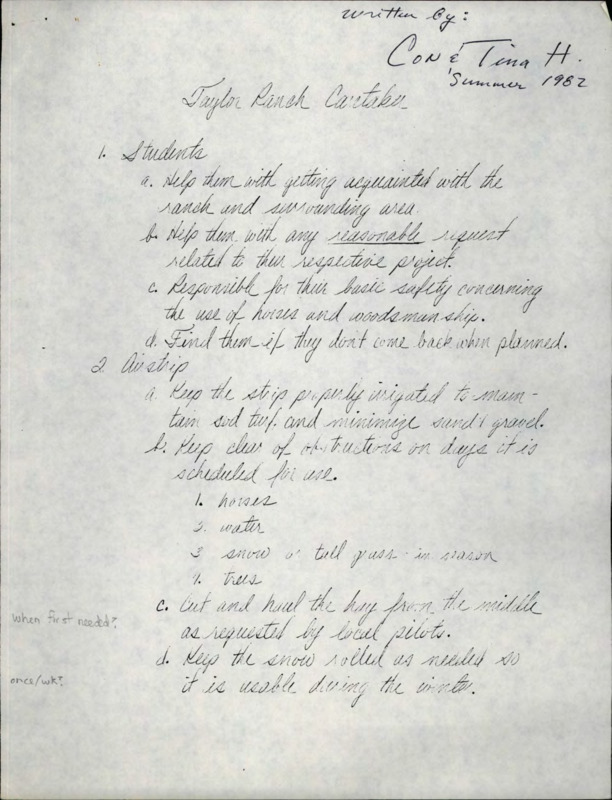 written by:
Con & Tina H.
Summer 1982
Taylor Ranch Caretaker
1. Students
a. Help them with getting acquainted with the
ranch and surrounding area.
b. Help them with any reasonable request
related to their respective project.
c. Responsible for their basic safety concerning
the use of horses and woodsmanship.
d. Find them if they don't come back when planned.
2. Airstrip
a. Keep the strip properly irrigated to main-
tain sod turf and minimize sand & gravel.
b. Keep clear of obstructions on days it is
scheduled for use.
1. horses
2. water
3 snow or tall grass - in season
4. trees
c. Cut and haul the hay from the middle
when first needed?
as requested by local pilots.
d. Keep the snow rolled as needed so
once/wk?
it is usable during the winter.